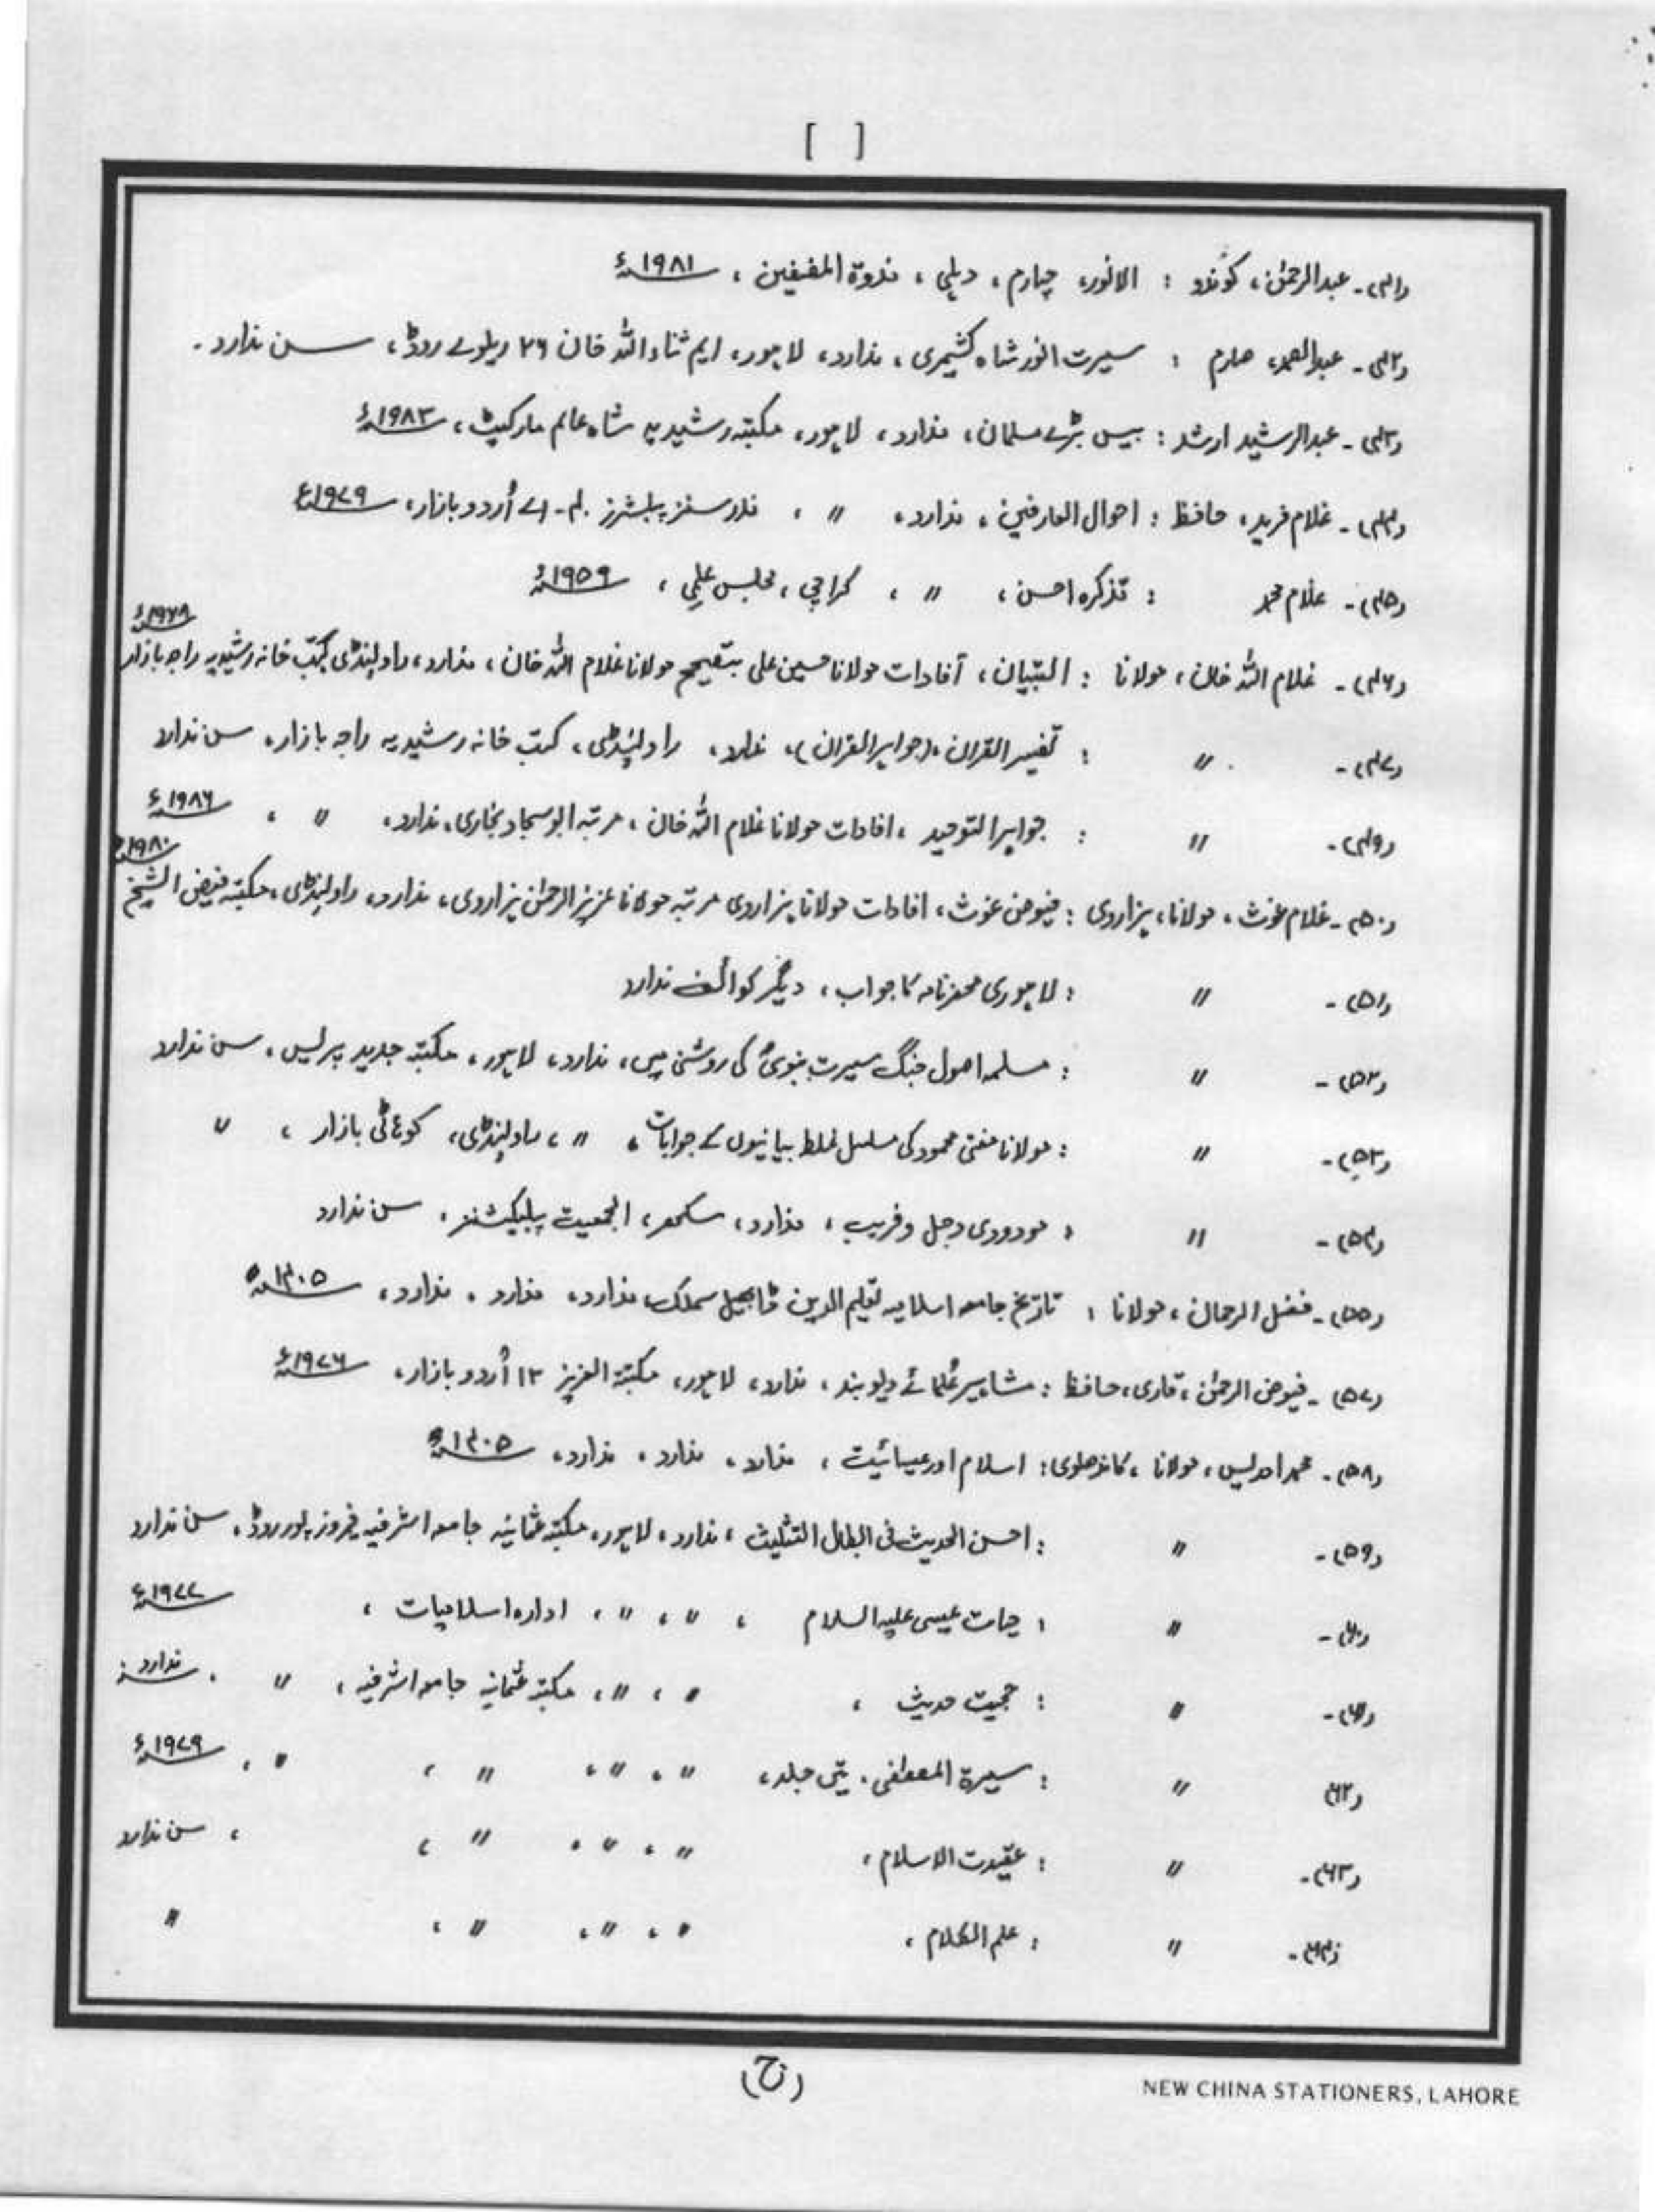 [ ]
(۴۱)۔ عبدالرحمٰن، کوندو : الانور، چہارم، دہلی، ندوۃ المصنفین، ۱۹۸۱ء
(۴۲)۔ عبدالصمد، صارم : سیرت انور شاہ کشمیری، ندارد، لاہور، ایم ثناء اللہ خان ۲۶ ریلوے روڈ، سن ندارد۔
(۴۳)۔ عبدالرشید ارشد : بیس بڑے مسلمان، ندارد، لاہور، مکتبہ رشیدیہ شاہ عالم مارکیٹ، ۱۹۸۳ء
(۴۴)۔ غلام فرید، حافظ : احوال العارفین، ندارد، 〃 ، نذر سنز پبلشرز ۴۰۔اے اُردو بازار، ۱۹۷۹ء
(۴۵)۔ غلام محمد : تذکرہ احسن، 〃 ، کراچی، مجلس علمی، ۱۹۵۹ء
(۴۶)۔ غلام اللہ خان، مولانا : التبیان، آفادات مولانا حسین علی بتصحیح مولانا غلام اللہ خان، ندارد، راولپنڈی کتب خانہ رشیدیہ راجہ بازار ۱۹۶۸ء
(۴۷)۔ 〃 : تفسیر القران، (جواہر القران)، ندارد، راولپنڈی، کتب خانہ رشیدیہ راجہ بازار، سن ندارد
(۴۹)۔ 〃 : جواہر التوحید، افادات مولانا غلام اللہ خان، مرتبہ ابو سجاد بخاری، ندارد، 〃 ، ۱۹۸۶ء
(۵۰)۔ غلام غوث، مولانا، ہزاروی : فیوض غوث، افادات مولانا ہزاروی مرتبہ مولانا عزیز الرحمٰن ہزاروی، ندارد، راولپنڈی، مکتبہ فیض الشیخ ۱۹۸۰ء
(۵۱)۔ 〃 : لاہوری محضرنامہ کا جواب، دیگر کوائف ندارد
(۵۲)۔ 〃 : مسلمہ اصول جنگ سیرت نبویؐ کی روشنی میں، ندارد، لاہور، مکتبہ جدید پریس، سن ندارد
(۵۳)۔ 〃 : مولانا مفتی محمود کی مسلسل غلط بیانیوں کے جوابات، 〃 ، راولپنڈی، کوہاٹی بازار، 〃
(۵۴)۔ 〃 : مودودی دجل و فریب، ندارد، سکھر، الجمعیت پبلیکیشنز، سن ندارد
(۵۵)۔ فضل الرحمان، مولانا : تاریخ جامعہ اسلامیہ تعلیم الدین ڈابھیل سملک، ندارد، ندارد، ندارد، ۱۴۰۵ھ
(۵۷)۔ فیوض الرحمٰن، قاری، حافظ : مشاہیر عُلمائے دیوبند، ندارد، لاہور، مکتبۃ العزیز ۱۳ اُردو بازار، ۱۹۷۶ء
(۵۸)۔ محمد ادریس، مولانا، کاندھلوی : اسلام اور عیسائیت، ندارد، ندارد، ندارد، ۱۴۰۵ھ
(۵۹)۔ 〃 : احسن الحدیث فی ابطال التثلیث، ندارد، لاہور، مکتبہ عثمانیہ جامعہ اشرفیہ فیروز پور روڈ، سن ندارد
(۶۰)۔ 〃 : حیات عیسی علیہ السلام ، 〃 ، 〃 ، ادارہ اسلامیات، ۱۹۷۷ء
(۶۱)۔ 〃 : حجیت حدیث ، 〃 ، 〃 ، مکتبہ عثمانیہ جامعہ اشرفیہ، 〃 ، ندارد
(۶۲) 〃 : سیرۃ المصطفی، تین جلد، 〃 ، 〃 ، 〃 ، 〃 ، ۱۹۷۹ء
(۶۳)۔ 〃 : عقیدت الاسلام، 〃 ، 〃 ، 〃 ، ، سن ندارد
(۶۴)۔ 〃 : علم الکلام، 〃 ، 〃 ، 〃 ، 〃
(ح)
NEW CHINA STATIONERS, LAHORE